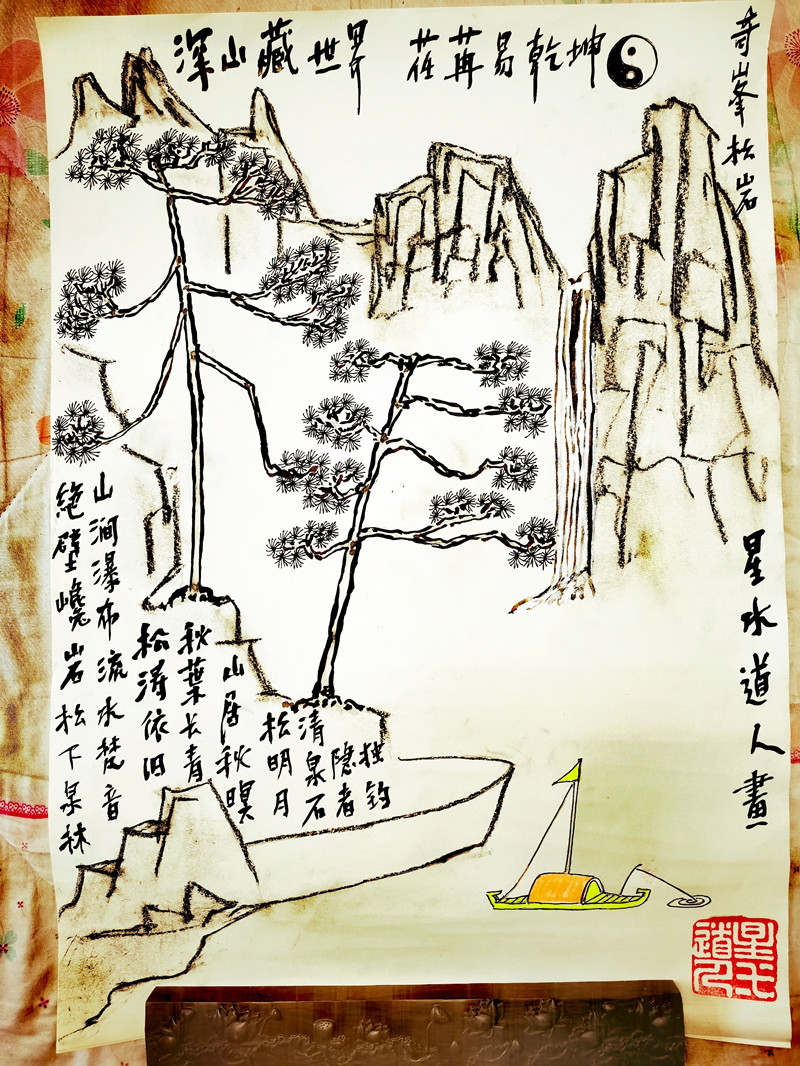 深山藏世界 荏苒易乾坤
奇峯松岩
星水道人畫
独钓
隐者
清泉石
松明月
山居秋暝
秋葉长青
松涛依旧
山澗瀑布流水梵音
絕壁巉岩松下泉林